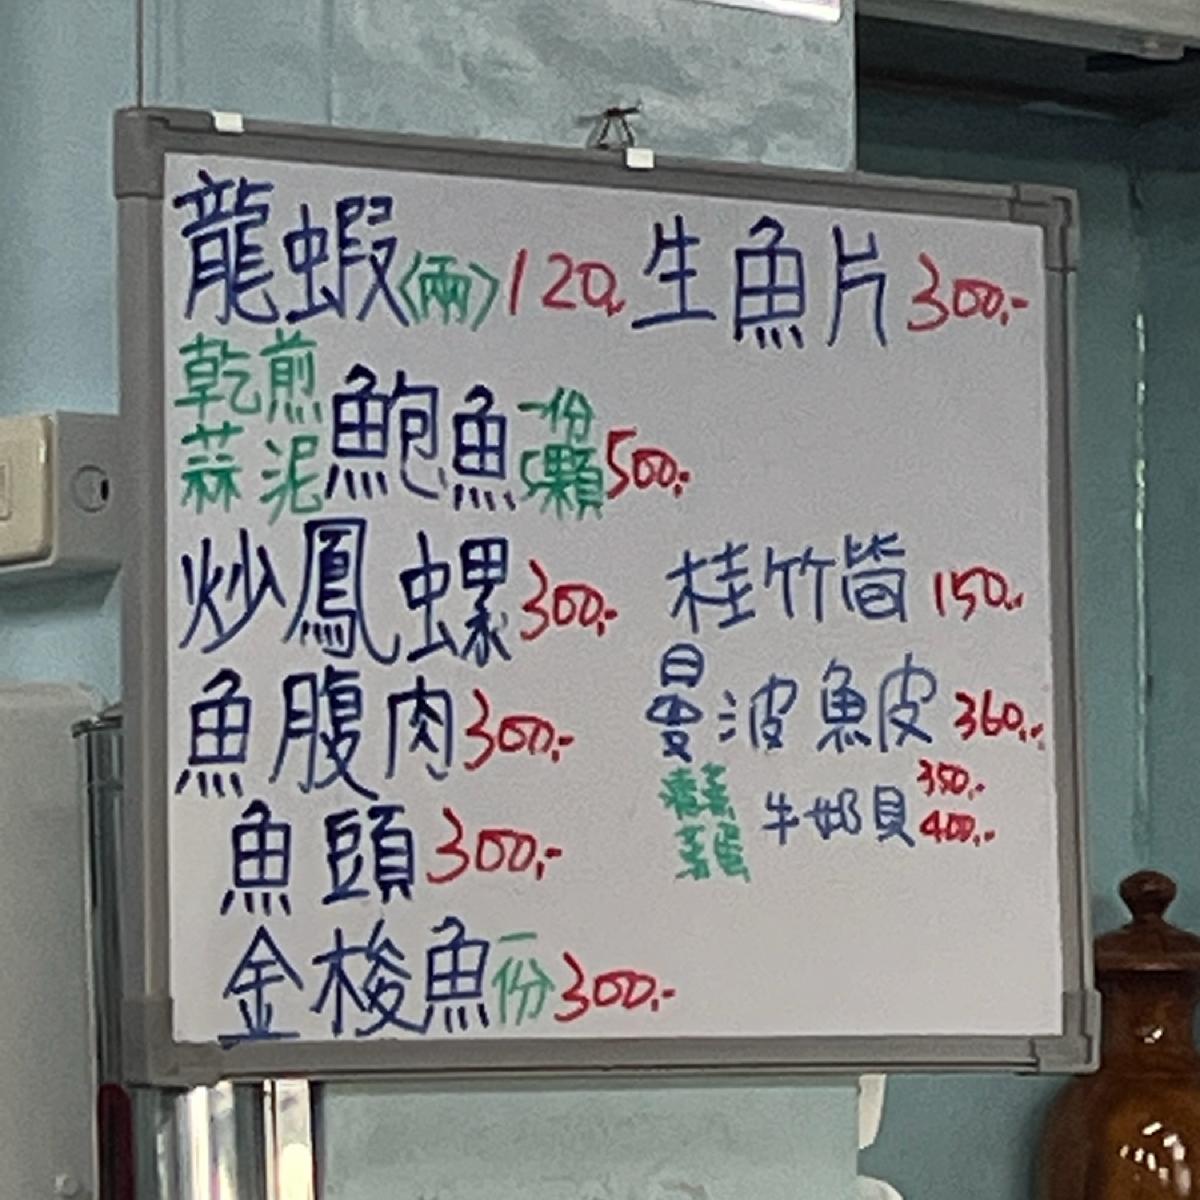 龍蝦〈兩〉120.- 生魚片 300.-
乾煎
蒜泥 鮑魚 一份 5顆 500.-
炒鳳螺 300.- 桂竹筍 150.-
魚腹肉 300.- 曼波魚皮 360.-
牛奶貝 350.- 400.-
魚頭 300.-
金梭魚 一份 300.-